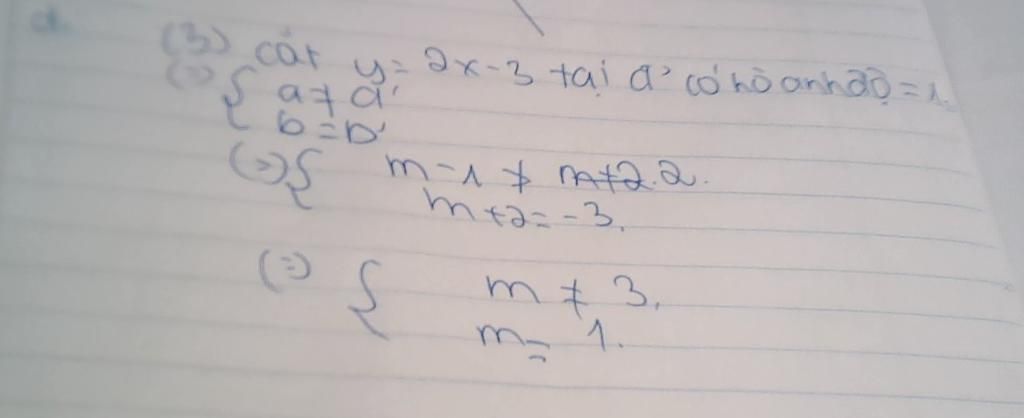 d.
(3) cắt y = 2x - 3 tại đ' có hò anh độ = 1.
(=) { a ≠ a'
b = b'
(=) { m - 1 ≠ 2.
m + 2 = -3.
(=) { m ≠ 3.
m = 1.